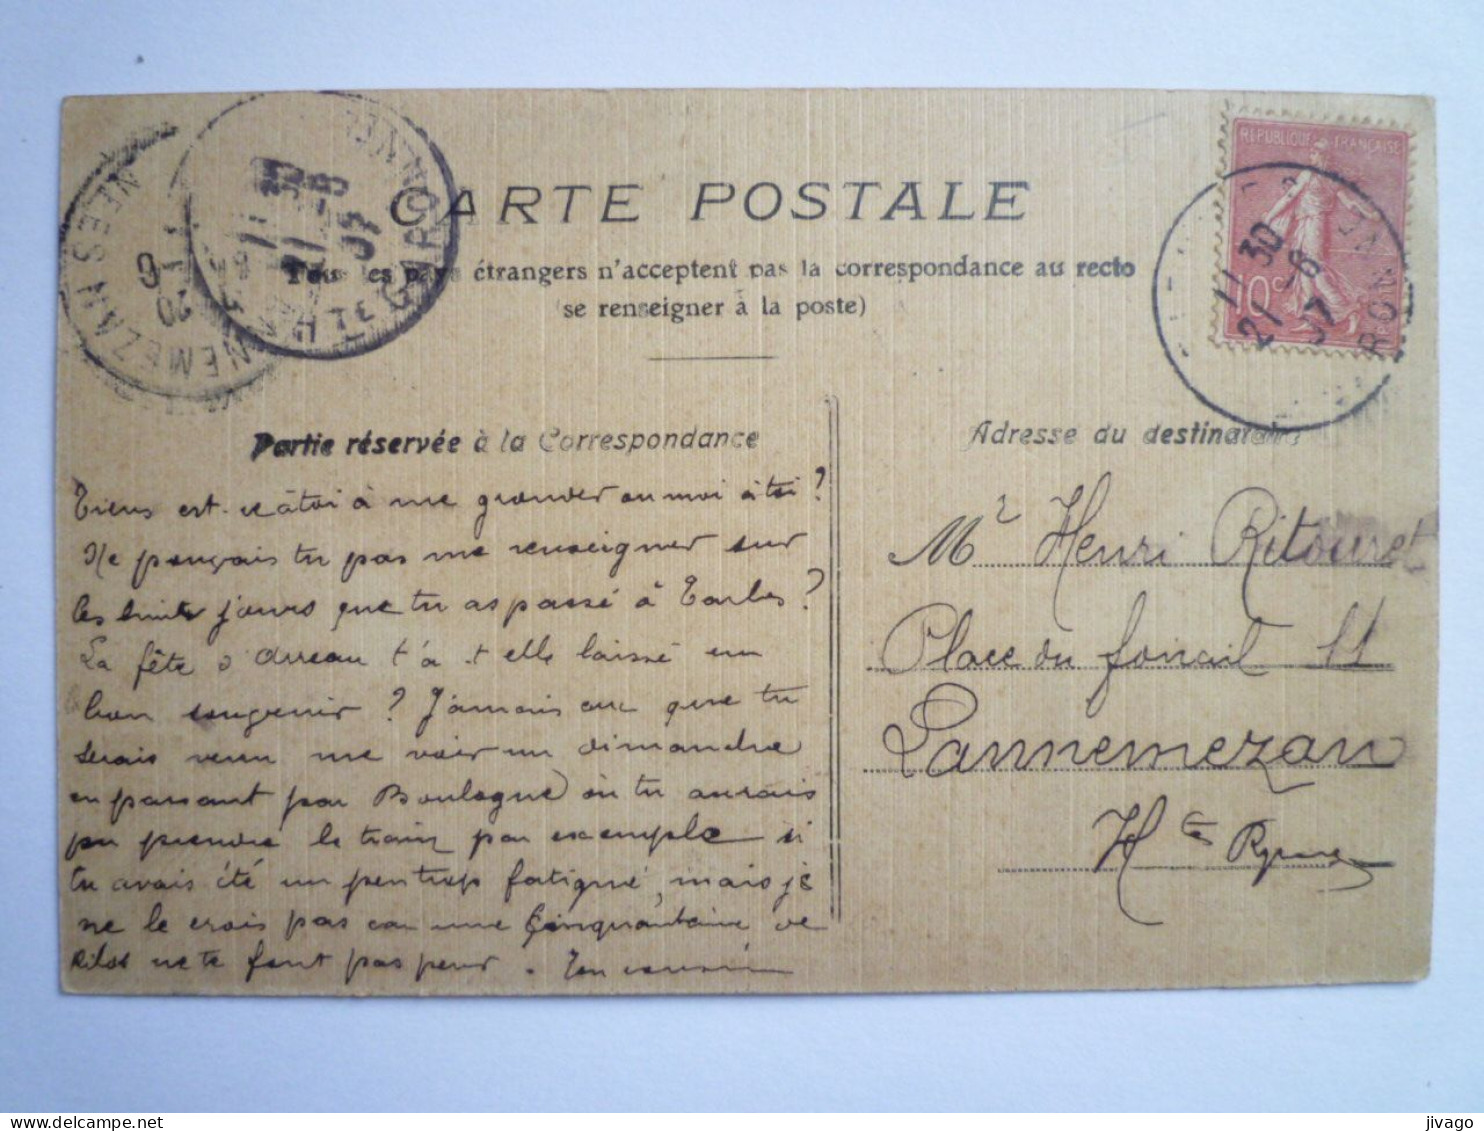 CARTE POSTALE
Tous les pays étrangers n'acceptent pas la correspondance au recto
(se renseigner à la poste)
REPUBLIQUE FRANÇAISE
10c
11 30
21 -8
07
11 30
21 -8
07
HTE GARONNE
Partie réservée à la Correspondance
Tiens est-ce à toi à me gronder ou moi à toi?
Ne pouvais tu pas me renseigner sur
les huit jours que tu as passé à Tarbes?
La fête d'Arreau t'a-t elle laissé un
bon souvenir? J'amais que tu
serais venu me voir un dimanche
en passant par Boulogne où tu aurais
pu prendre le train par exemple si
tu avais été un peu trop fatigué, mais je
ne le crois pas car une Cinquantaine de
Kilos ne te font pas peur. Ton cousin
Adresse du destinataire
Mr Henri Ritouret
Place du foirail 11
Lannemezan
Htes Pyrénées
jivago